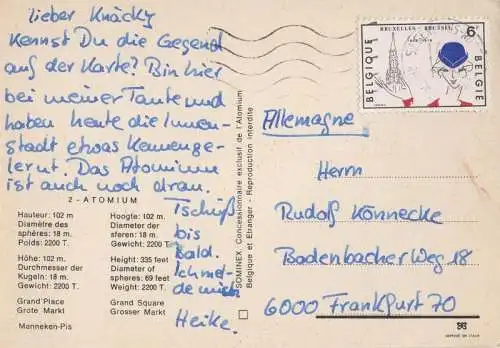 lieber Knäcky
Kennst Du die Gegend
auf der Karte? Bin hier
bei meiner Tante und
haben heute die Innen-
stadt etwas kennenge-
lernt. Das Atomium
ist auch noch dran.
Tschüß
bis
Bald.
Ich mel-
de mich
Heike.
2 - ATOMIUM
Hauteur: 102 m
Diamètre des
sphères: 18 m.
Poids: 2200 T.
Hoogte: 102 m.
Diameter der
sferen: 18 m.
Gewicht: 2200 T.
Höhe: 102 m.
Durchmesser der
Kugeln: 18 m.
Gewicht: 2200 T.
Height: 335 feet
Diameter of
spheres: 69 feet
Weight: 2200 T.
Grand'Place
Grote Markt
Grand Square
Grosser Markt
Manneken-Pis
SOMINEX Concessionnaire exclusif de l'Atomium
Belgique et Etranger - Reproduction interdite
BRUXELLES - BRUSSEL
6F
BELGIQUE
BELGIË
Allemagne
Herrn
Rudolf Könnecke
Badenbacher Weg 18
6000 Frankfurt 70